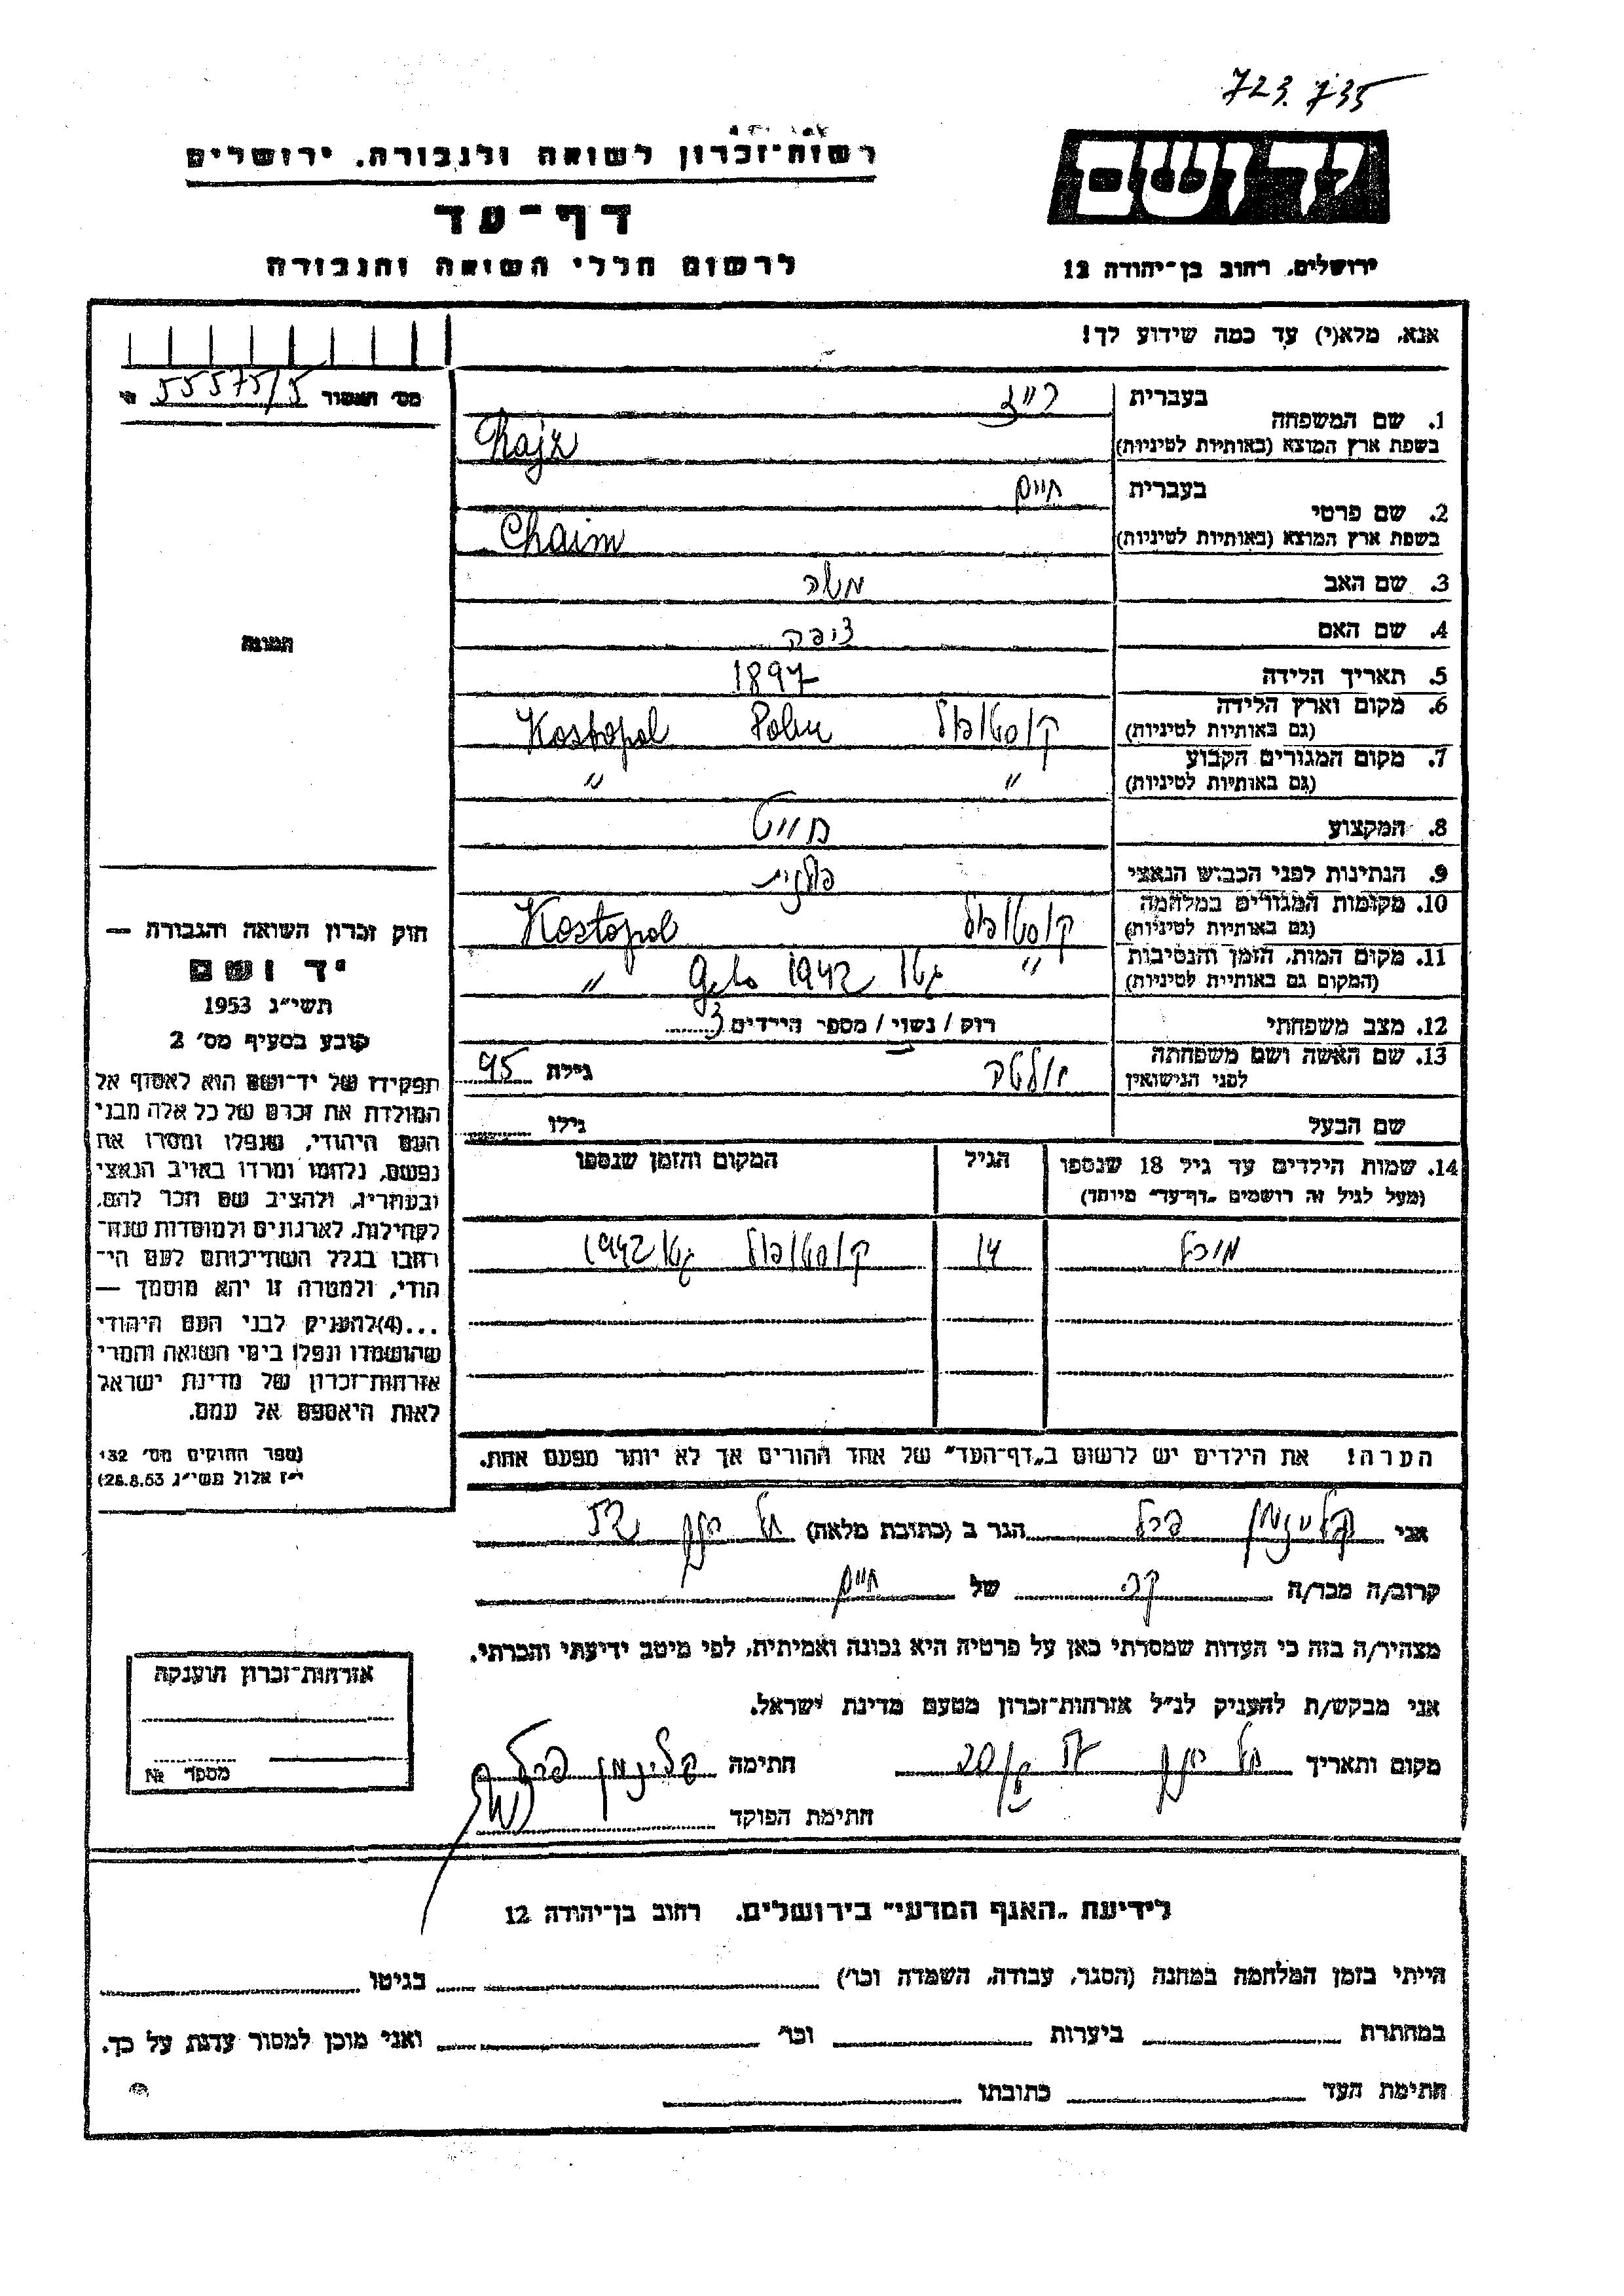 723.735
יד ושם
רשות־זכרון לשואה ולגבורה. ירושלים
דף־עד
ירושלים, רחוב בן־יהודה 12
לרשום חללי השואה והגבורה
אנא, מלא(י) עד כמה שידוע לך!
מס׳ תאשור 55575/5
1. שם המשפחה
בעברית
בשפת ארץ המוצא (באותיות לטיניות)
2. שם פרטי
בעברית חיים
בשפת ארץ המוצא (באותיות לטיניות) Chaim
3. שם האב משה
4. שם האם ציפה
5. תאריך הלידה 1897
6. מקום וארץ הלידה (גם באותיות לטיניות) קוסטופול Kostopol
7. מקום המגורים הקבוע (גם באותיות לטיניות) " "
8. המקצוע חייט
9. הנתינות לפני הכבוש הנאצי פולנית
10. מקומות המגורים במלחמה (גם באותיות לטיניות) קוסטופול Kostopol
11. מקום המות, הזמן והנסיבות (המקום גם באותיות לטיניות) " גטו 1942 Geto "
12. מצב משפחתי רווק / נשוי / מספר הילדים 3
13. שם האשה ושם משפחתה לפני הנישואין גילה 45
שם הבעל גילו
14. שמות הילדים עד גיל 18 שנספו
(מעל לגיל זה רושמים „דף־עד" מיוחד)
הגיל
המקום והזמן שנספו
14 קוסטופול גטו 1942
הערה! את הילדים יש לרשום ב„דף־העד" של אחד ההורים אך לא יותר מפעם אחת.
התמונה
חוק זכרון השואה והגבורה —
יד ושם
תשי״ג 1953
קובע בסעיף מס׳ 2
תפקידו של יד־ושם הוא לאסוף אל
המולדת את זכרם של כל אלה מבני
העם היהודי, שנפלו ומסרו את
נפשם, נלחמו ומרדו באויב הנאצי
ובעוזריו, ולהציב שם וזכר להם,
לקהילות, לארגונים ולמוסדות שנח־
רבו בגלל השתייכותם לעם הי־
הודי, ולמטרה זו יהא מוסמך —
...(4) להעניק לבני העם היהודי
שהושמדו ונפלו בימי השואה והמרי
אזרחות־זכרון של מדינת ישראל
לאות היאספם אל עמם.
(ספר החוקים מס׳ 132
י״ז אלול תשי״ג 28.8.53)
אני קליגמן פרל הגר ב (כתובת מלאה) תל יוסף
קרוב/ה מכר/ה של חיים
מצהיר/ה בזה כי העדות שמסרתי כאן על פרטיה היא נכונה ואמיתית, לפי מיטב ידיעתי והכרתי.
אני מבקש/ת להעניק לנ״ל אזרחות־זכרון מטעם מדינת ישראל.
מקום ותאריך תל יוסף חתימה קליגמן פרל
חתימת הפוקד
אזרחות־זכרון הוענקה
מספר №
לידיעת „האגף המדעי" בירושלים. רחוב בן־יהודה 12
הייתי בזמן המלחמה במחנה (הסגר, עבודה, השמדה וכו׳) בגיטו
במחתרת ביערות וכו׳ ואני מוכן למסור עדות על כך.
חתימת העד כתובתו